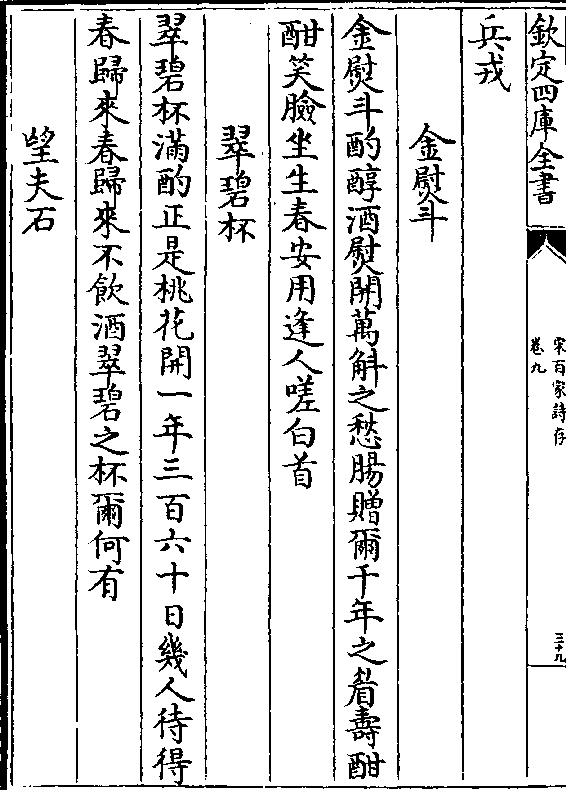 欽定四庫全書
宋百家詩存
卷九
三十九
兵戎
金熨斗
金熨斗酌醇酒熨開萬斛之愁腸贈爾千年之眉壽酣
酣笑臉坐生春安用逢人嗟白首
翠碧杯
翠碧杯滿酌正是桃花開一年三百六十日幾人待得
春歸來春歸來不飲酒翠碧之杯爾何有
望夫石